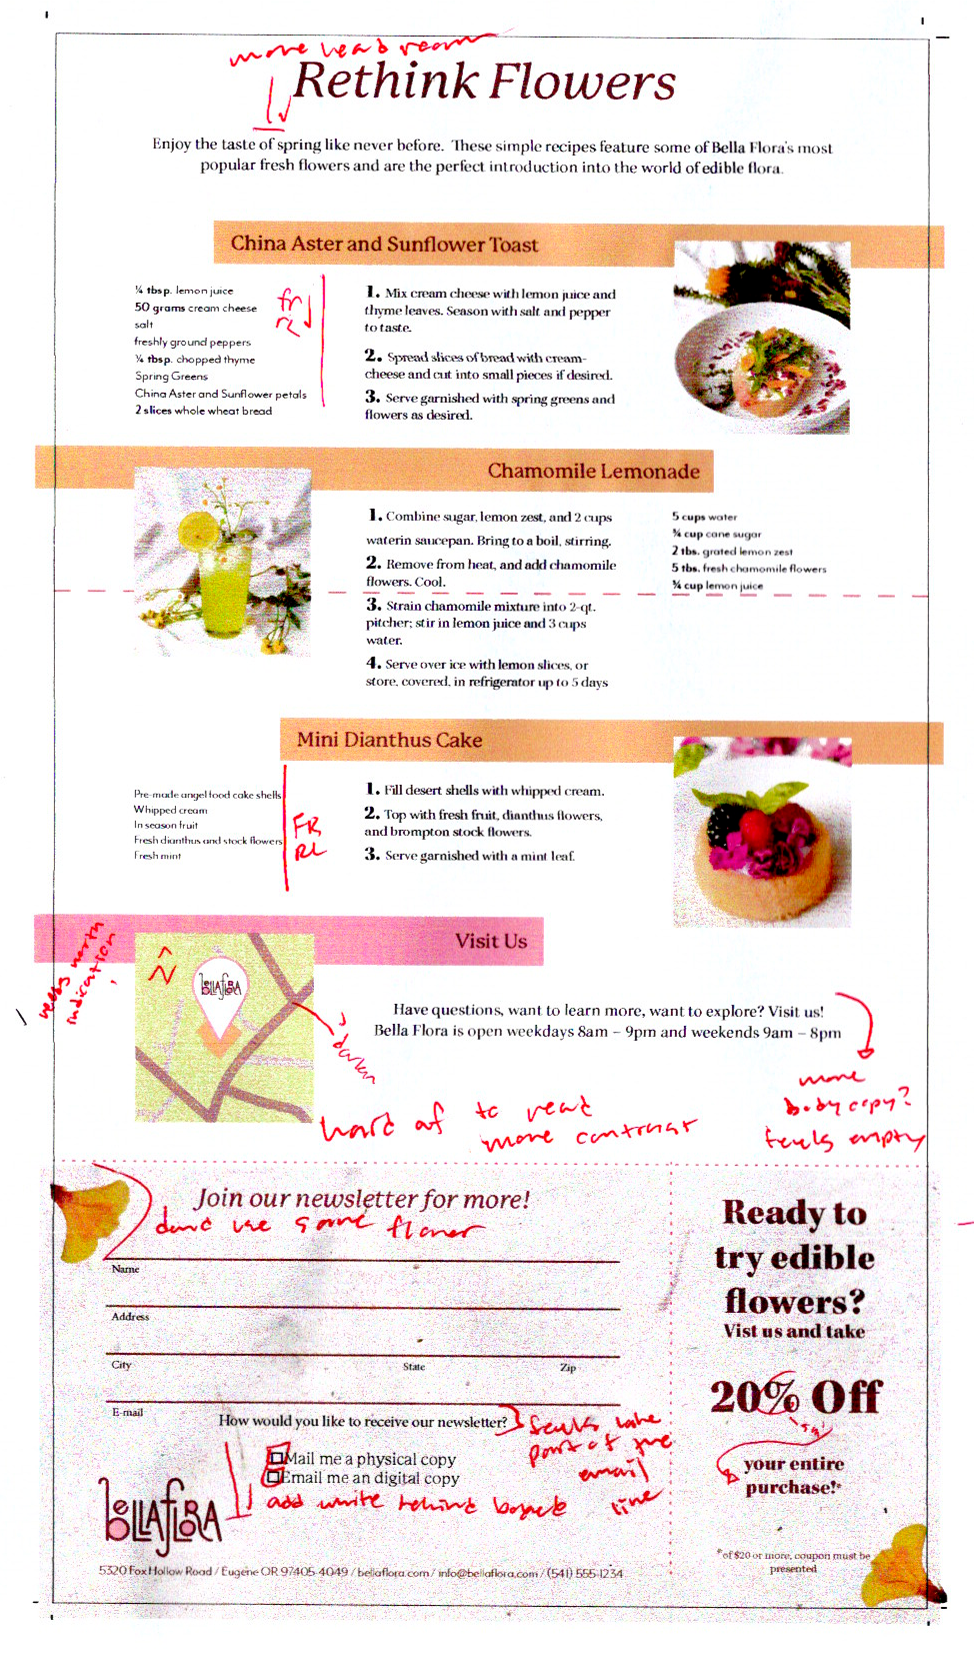 more head room
Rethink Flowers
Enjoy the taste of spring like never before. These simple recipes feature some of Bella Flora's most
popular fresh flowers and are the perfect introduction into the world of edible flora.
China Aster and Sunflower Toast
¼ tbsp. lemon juice
50 grams cream cheese
salt
freshly ground peppers
¼ tbsp. chopped thyme
Spring Greens
China Aster and Sunflower petals
2 slices whole wheat bread
fr
RL
1. Mix cream cheese with lemon juice and
thyme leaves. Season with salt and pepper
to taste.
2. Spread slices of bread with cream-
cheese and cut into small pieces if desired.
3. Serve garnished with spring greens and
flowers as desired.
Chamomile Lemonade
1. Combine sugar, lemon zest, and 2 cups
waterin saucepan. Bring to a boil, stirring.
2. Remove from heat, and add chamomile
flowers. Cool.
3. Strain chamomile mixture into 2-qt.
pitcher; stir in lemon juice and 3 cups
water.
4. Serve over ice with lemon slices, or
store, covered, in refrigerator up to 5 days
5 cups water
¾ cup cane sugar
2 tbs. grated lemon zest
5 tbs. fresh chamomile flowers
¾ cup lemon juice
Mini Dianthus Cake
Pre-made angel food cake shells
Whipped cream
In season fruit
Fresh dianthus and stock flowers
Fresh mint
FR
RL
1. Fill desert shells with whipped cream.
2. Top with fresh fruit, dianthus flowers,
and brompton stock flowers.
3. Serve garnished with a mint leaf.
Visit Us
needs north
indication
N
BELLAFLORA
darken
Have questions, want to learn more, want to explore? Visit us!
Bella Flora is open weekdays 8am – 9pm and weekends 9am – 8pm
more
body copy?
feels empty
hard af to read
more contrast
Join our newsletter for more!
dont use same flower
Name
Address
City State Zip
E-mail
How would you like to receive our newsletter?
feels like
part of the
email
line
Mail me a physical copy
Email me an digital copy
add white behind
BELLAFLORA
5320 Fox Hollow Road / Eugene OR 97405-4049 / bellaflora.com / info@bellaflora.com / (541) 555-1234
Ready to
try edible
flowers?
Vist us and take
20% Off
your entire
purchase!*
*of $20 or more, coupon must be
presented